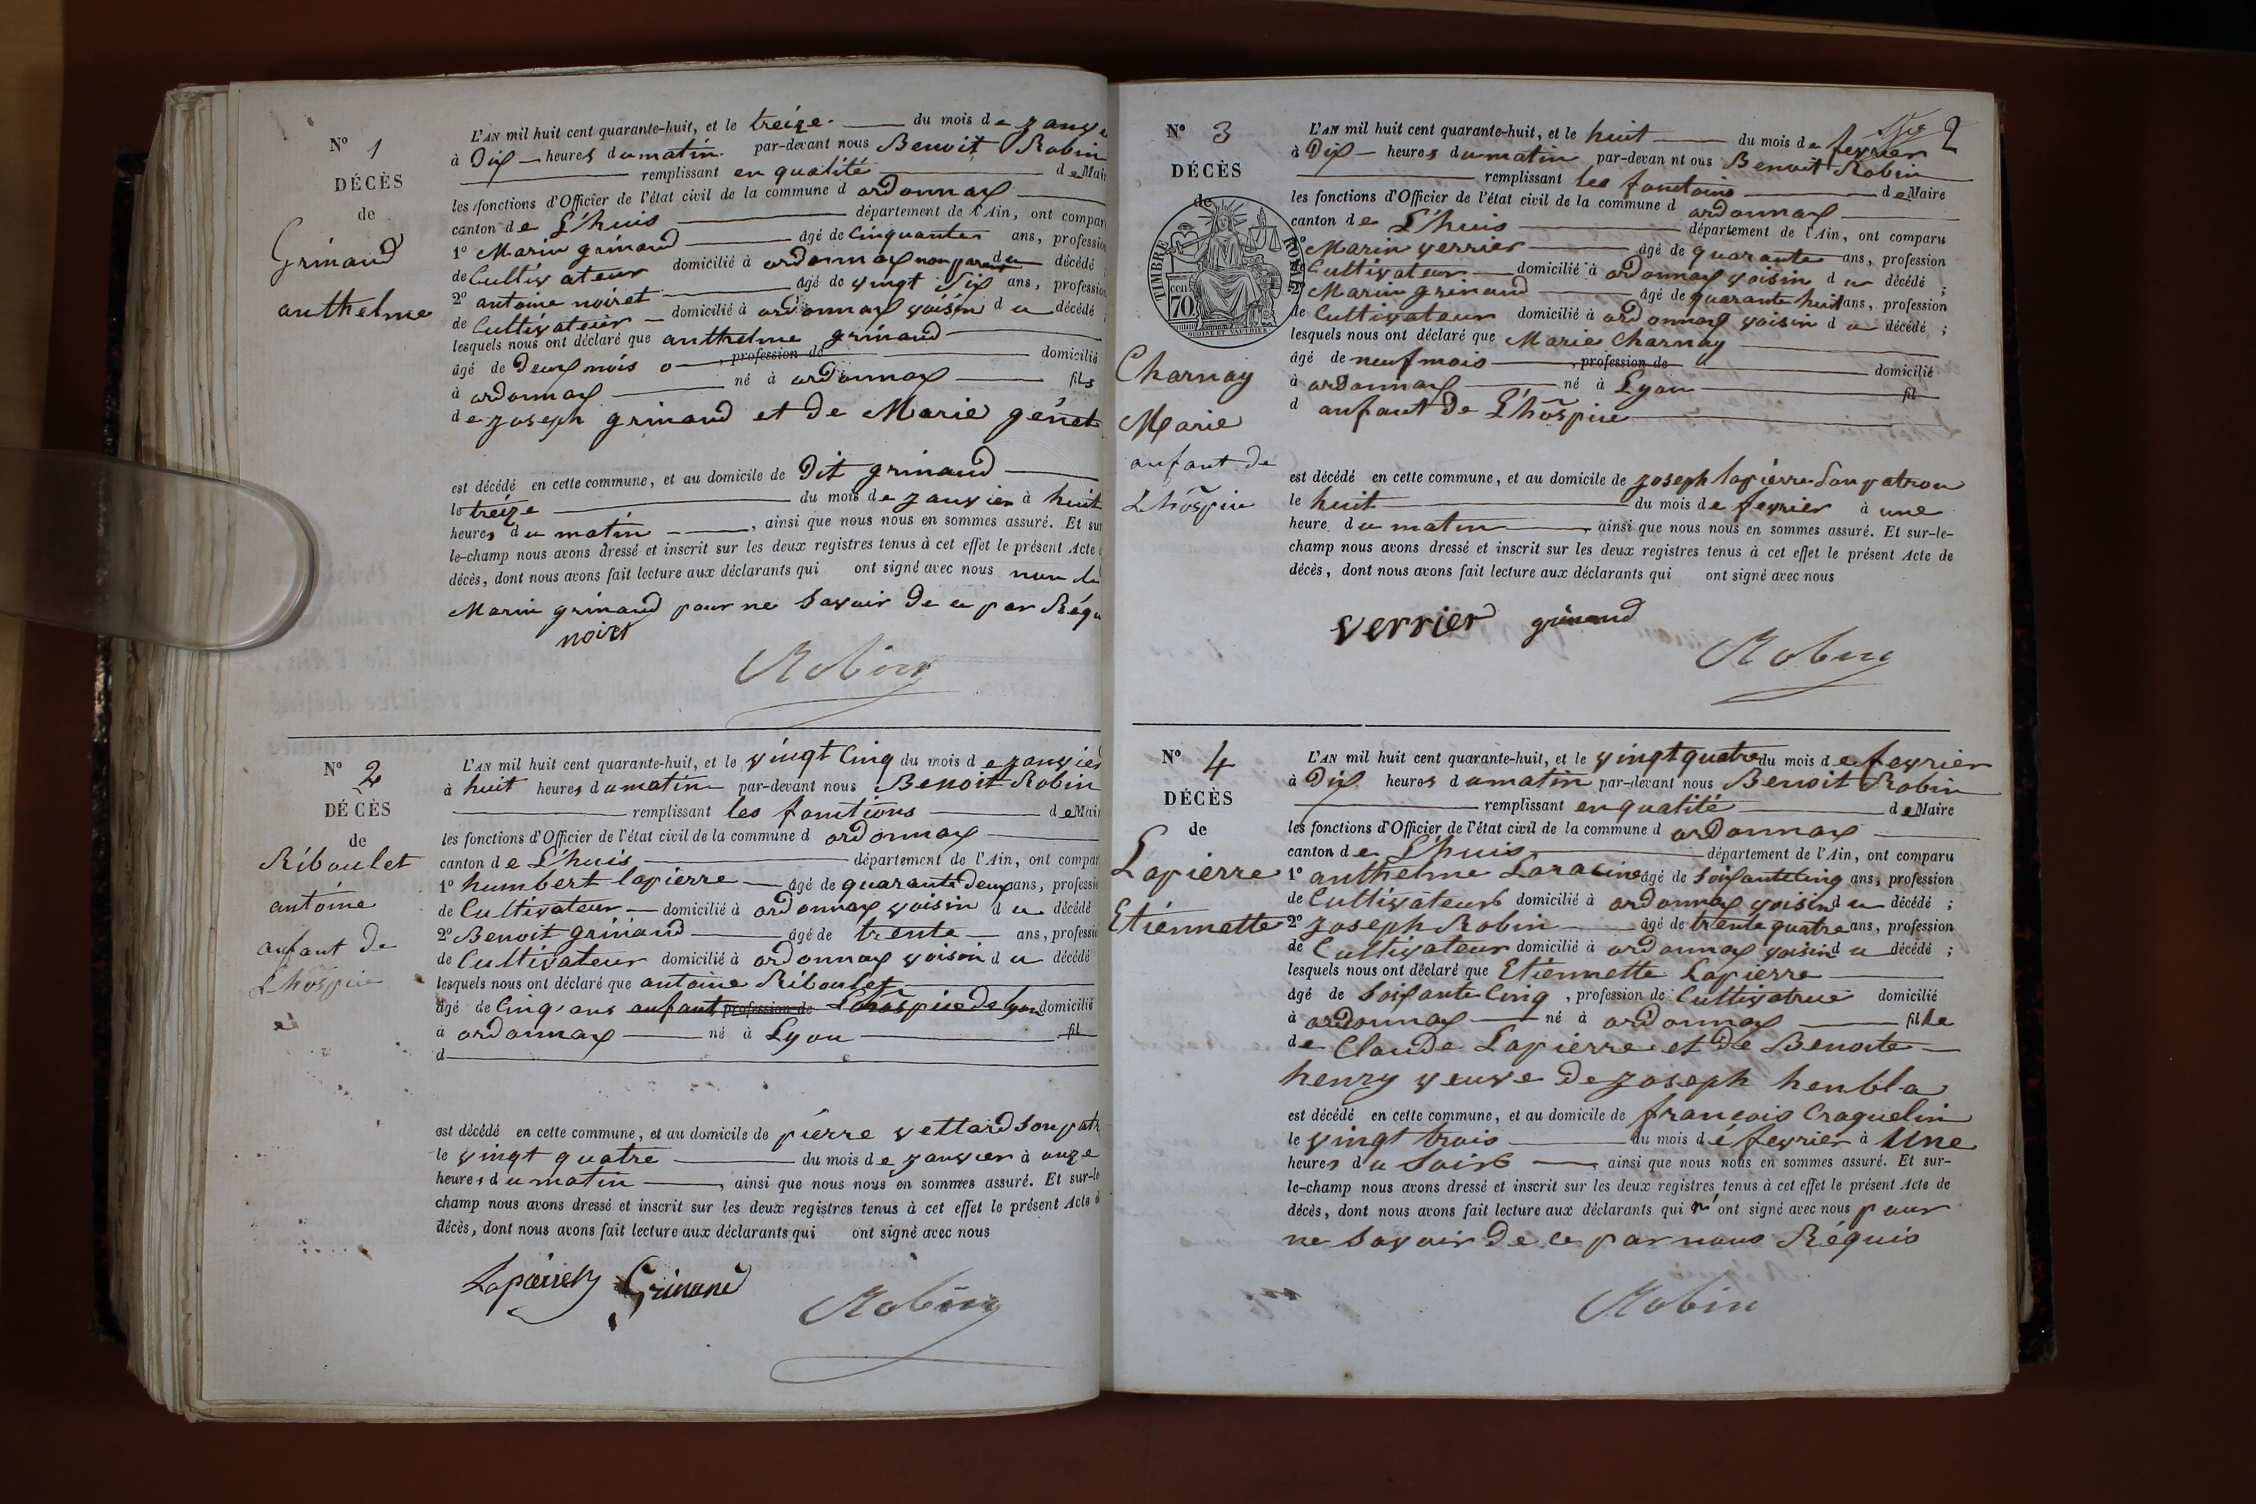 Nº 1
DÉCÈS
de
Grinand
anthelme
L'AN mil huit cent quarante-huit, et le treize du mois de
à Dix heures du matin par-devant nous Benoit Robin
remplissant en qualité de Mair
les fonctions d'Officier de l'état civil de la commune d ordonnax
canton de L'huis département de l'Ain, ont compar
1º Marin grinand âgé de Cinquante ans, profession
de Cultivateur domicilié à ordonnax non parent du décédé ;
2º antoine noiret âgé de vingt Six ans, profession
de Cultivateur domicilié à ordonnax voisin du décédé ;
lesquels nous ont déclaré que anthelme grinand
âgé de Deux mois profession de domicilié
à ordonnax né à ordonnax fils
de Joseph grinand et de Marie génet
est décédé en cette commune, et au domicile de Dit grinand
le treize du mois de janvier à huit
heures du matin, ainsi que nous nous en sommes assuré. Et sur
le-champ nous avons dressé et inscrit sur les deux registres tenus à cet effet le présent Acte
décès, dont nous avons fait lecture aux déclarants qui ont signé avec nous non le
Marin grinand pour ne Savoir de ce par Réqu
noiret
Robin
Nº 2
DÉCÈS
de
Riboulet
antoine
anfant de
L'hospice
L'AN mil huit cent quarante-huit, et le vingt Cinq du mois de janvier
à huit heures du matin par-devant nous Benoit Robin
remplissant les fontions de Mair
les fonctions d'Officier de l'état civil de la commune d ordonnax
canton de L'huis département de l'Ain, ont compar
1º humbert lapierre âgé de quarante deux ans, professi
de Cultivateur domicilié à ordonnax voisin du décédé
2º Benoit grinand âgé de trente ans, professi
de Cultivateur domicilié à ordonnax voisin du décédé
lesquels nous ont déclaré que antoine Riboulet
âgé de Cinq ans anfant profession de L'hospice de lyon domicilié
à ordonnax né à Lyon fil
d
est décédé en cette commune, et au domicile de pierre vettard Son patr
le vingt quatre du mois de janvier à onze
heures du matin, ainsi que nous nous en sommes assuré. Et sur-le
champ nous avons dressé et inscrit sur les deux registres tenus à cet effet le présent Acte d
décès, dont nous avons fait lecture aux déclarants qui ont signé avec nous
Grinand
Robin
2
Nº 3
DÉCÈS
de
TIMBRE ROYAL
70 cen
Charnay
Marie
anfant de
L'hospice
L'AN mil huit cent quarante-huit, et le huit du mois de fevrier
à Dix heures du matin par-devan nt ous Benoit Robin
remplissant les fonctoins de Maire
les fonctions d'Officier de l'état civil de la commune d ordonnax
canton de L'huis département de l'Ain, ont comparu
Marin verrier âgé de quarante ans, profession
Cultivateur domicilié à ordonnax voisin du décédé ;
Marin grinand âgé de quarante huit ans, profession
de Cultivateur domicilié à ordonnax voisin du décédé ;
lesquels nous ont déclaré que Marie Charnay
âgé de neuf mois, profession de domicilié
à ordonnax né à Lyon fil
d anfant de L'hospice
est décédé en cette commune, et au domicile de joseph lapierre Son patron
le huit du mois de fevrier à une
heure du matin, ainsi que nous nous en sommes assuré. Et sur-le-
champ nous avons dressé et inscrit sur les deux registres tenus à cet effet le présent Acte de
décès, dont nous avons fait lecture aux déclarants qui ont signé avec nous
verrier grinand
Robin
Nº 4
DÉCÈS
de
Lapierre
Etiennette
L'AN mil huit cent quarante-huit, et le vingt quatre du mois de fevrier
à Dix heures du matin par-devant nous Benoit Robin
remplissant en qualité de Maire
les fonctions d'Officier de l'état civil de la commune d ordonnax
canton de L'huis département de l'Ain, ont comparu
1º anthelme Laracine âgé de Soixante Cinq ans, profession
de Cultivateur domicilié à ordonnax voisin du décédé ;
2º joseph Robin âgé de trente quatre ans, profession
de Cultivateur domicilié à ordonnax voisin du décédé ;
lesquels nous ont déclaré que Etiennette Lapierre
âgé de Soixante Cinq, profession de Cultivatrice domicilié
à ordonnax né à ordonnax fille
de Claude Lapierre et de Benoite
henry veuve de joseph
est décédé en cette commune, et au domicile de françois Craquelin
le vingt trois du mois de fevrier à Une
heures du Soir, ainsi que nous nous en sommes assuré. Et sur-
le-champ nous avons dressé et inscrit sur les deux registres tenus à cet effet le présent Acte de
décès, dont nous avons fait lecture aux déclarants qui n'ont signé avec nous pour
ne Savoir de ce par nous Réquis
Robin